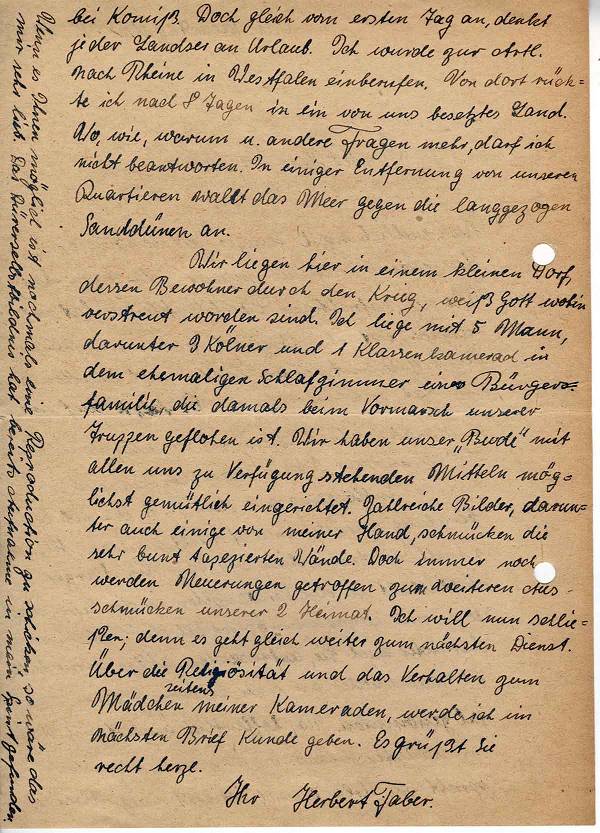 bei Komiß. Doch gleich vom ersten Tag an, denkt
jeder Landser an Urlaub. Ich wurde zur Artl.
nach Rheine in Westfalen einberufen. Von dort rück=
te ich nach 8 Tagen in ein von uns besetztes Land.
Wo, wie, warum u. andere Fragen mehr, darf ich
nicht beantworten. In einiger Entfernung von unseren
Quartieren wallt das Meer gegen die langgezogen
Sanddünen an.
Wir liegen hier in einem kleinen Dorf,
dessen Bewohner durch den Krieg, weiß Gott wohin
verstreut worden sind. Ich liege mit 5 Mann,
darunter 3 Kölner und 1 Klassenkamerad in
dem ehemaligen Schlafzimmer eines Bürgers=
familie die damals beim Vormarsch unserer
Truppen geflohen ist. Wir haben unser "Bude" mit
allen uns zu Verfügung stehenden Mitteln mög=
lichst gemütlich eingerichtet. Zahlreiche Bilder, darun=
ter auch einige von meiner Hand, schmücken die
sehr bunt tapezierten Wände. Doch immer noch
werden Neuerungen getroffen zum weiteren Aus=
schmücken unserer 2 Heimat. Ich will nun schlie=
ßen; denn es geht gleich weiter zum nächsten Dienst.
Über die Religiösität und das Verhalten zum
Mädchen seitens meiner Kameraden, werde ich im
nächsten Brief Kunde geben. Es grüßt Sie
recht herzl.
Ihr Herbert Faber.
Wenn es Ihnen möglich ist nochmals eine Reproduction zu schicken, so wäre das
mir sehr lieb. Das Dürerselbstbildnis hat bereits Aufnahme in mein Spint gefunden.